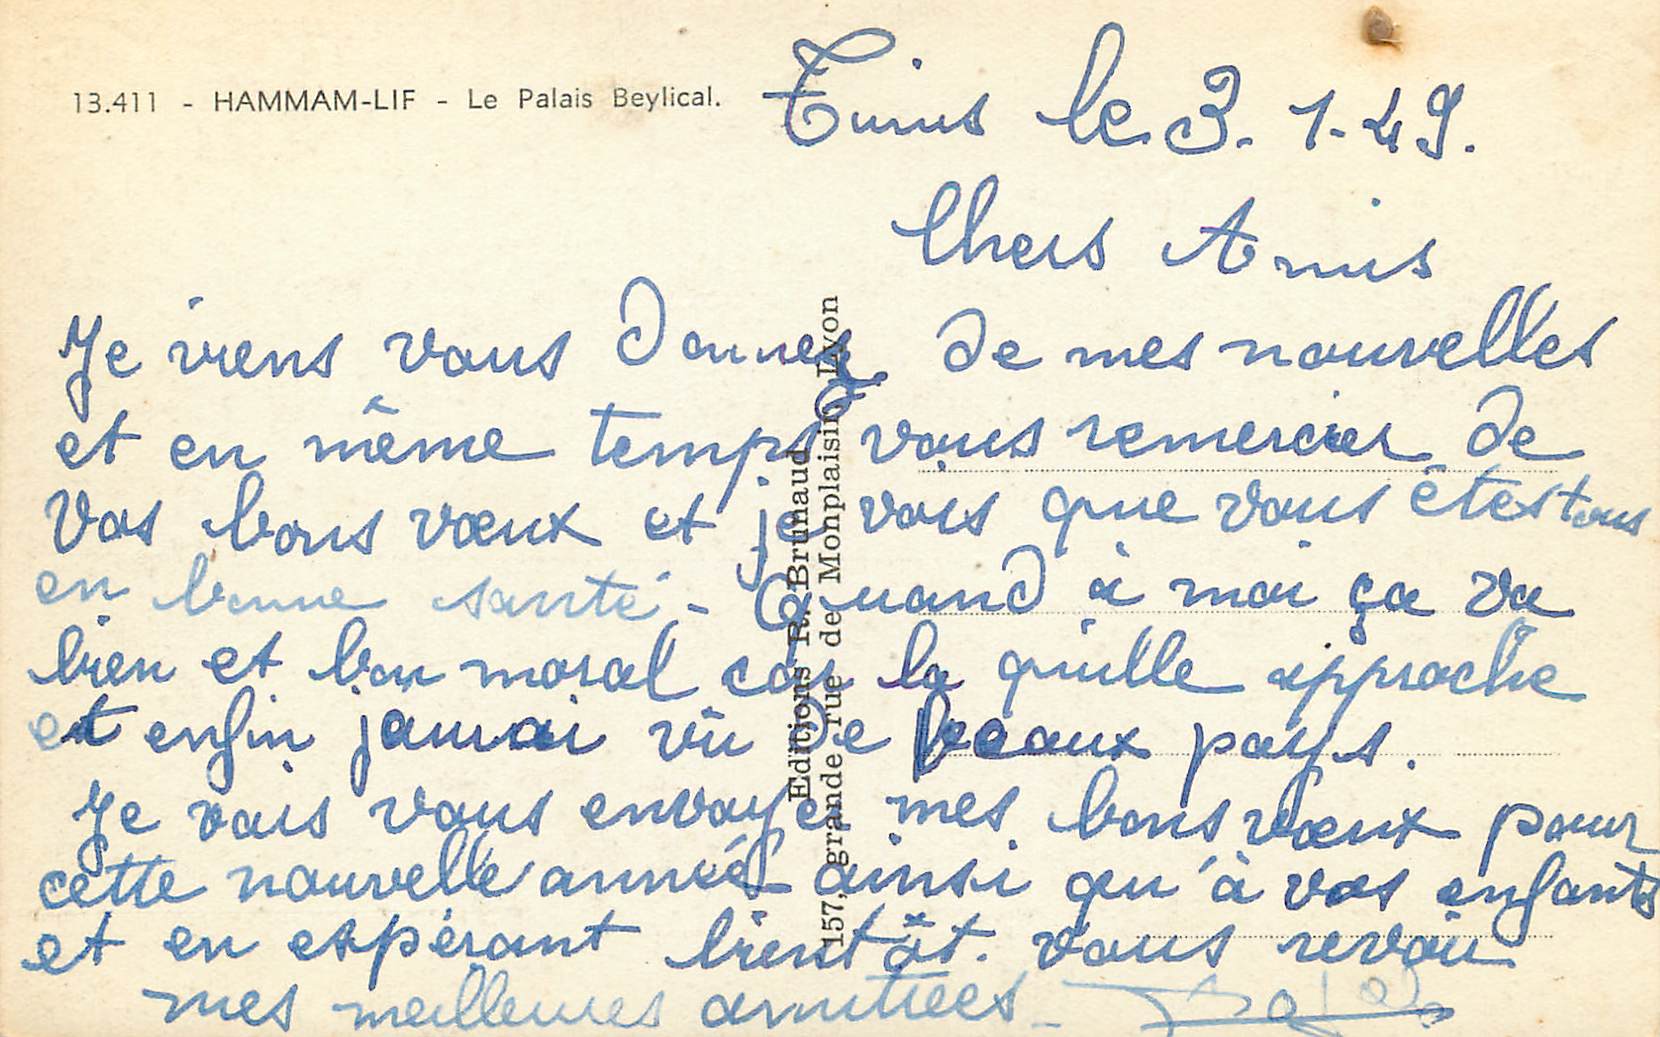 13.411 - HAMMAM-LIF - Le Palais Beylical.
Tunis le 3.1.49.
Chers Amis
Je viens vous donner de mes nouvelles
et en même temps vous remercier de
vos bons vœux et je vois que vous êtes tous
en bonne santé - Quand à moi ça va
bien et bon moral car la quille approche
et enfin jamai vû de beaux pays.
Je vais vous envoyer mes bons vœux pour
cette nouvelle année ainsi qu'à vos enfants
et en espérant bientôt. vous revoir
mes meilleures amitiées -
Editions R. Brunaud
157, grande rue de Monplaisir Lyon